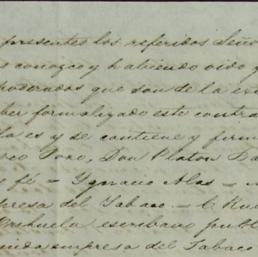 presentes los referidos Seño
conozco y habiendo oido
apoderados que son de la
ber formalizado este contra
la es y se contiene y firm
Toro, Don Platon
Ygnacio Alas
presa del Tabaco
escribano publ
empresa del Tabaco